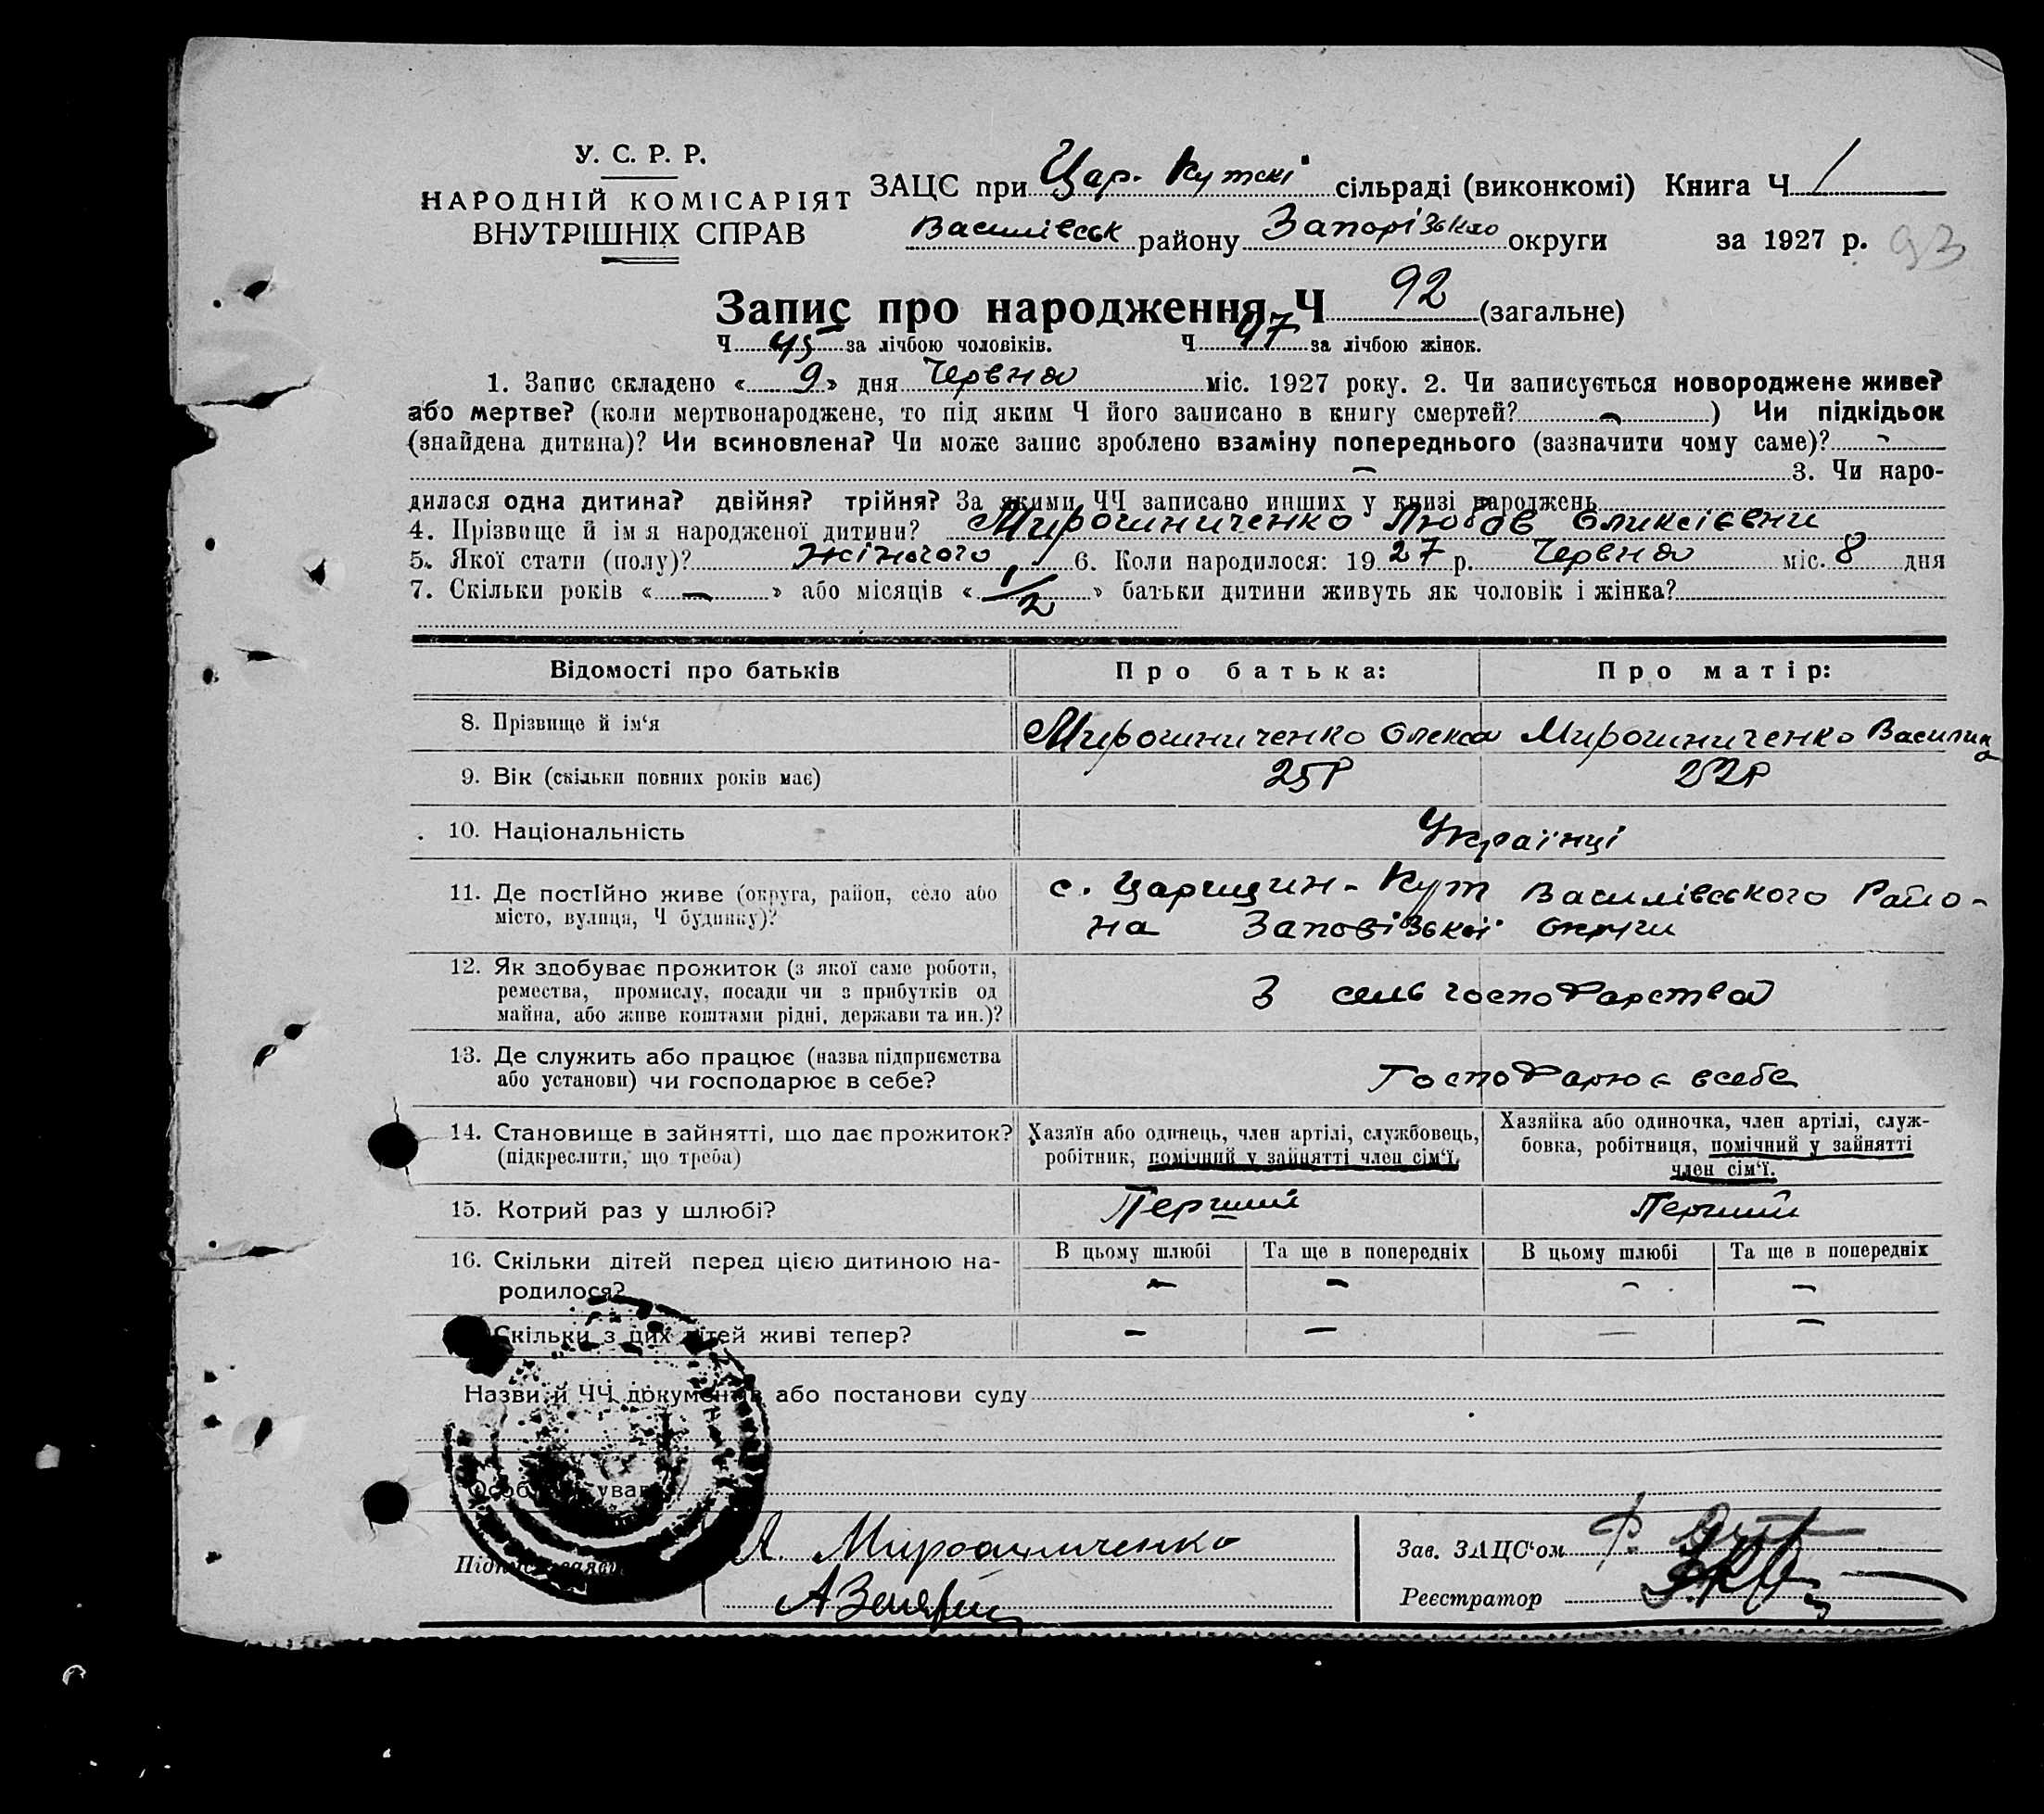 У. С. Р. Р.
НАРОДНІЙ КОМІСАРІЯТ
ВНУТРІШНІХ СПРАВ
ЗАЦС при Цар. Кутскі сільраді (виконкомі) Книга Ч 1
Василівськ району Запорізькао округи за 1927 р. 93
Запис про народження Ч 92 (загальне)
Ч 45 за лічбою чоловіків. Ч 47 за лічбою жінок.
1. Запис складено « 9 » дня Червня міс. 1927 року. 2. Чи записується новороджене живе?
або мертве? (коли мертвонароджене, то під яким Ч його записано в книгу смертей? - ) Чи підкідьок
(знайдена дитина)? Чи всиновлена? Чи може запис зроблено взаміну попереднього (зазначити чому саме)? -
- 3. Чи наро-
дилася одна дитина? двійня? трійня? За якими ЧЧ записано инших у книзі народжень
4. Прізвище й ім я народженої дитини? Мирошниченко Любов Оликсієвни
5. Якої стати (полу)? жіночого 6. Коли народилося: 1927 р. Червня міс. 8 дня
7. Скільки років « - » або місяців « 1/2 » батьки дитини живуть як чоловік і жінка?
Відомості про батьків Про батька: Про матір:
8. Прізвище й ім'я Мирошниченко Олекса Мирошниченко Василина
9. Вік (скільки повних років має) 25р 22р
10. Національність Українці
11. Де постійно живе (округа, район, село або
місто, вулиця, Ч будинку)?
с. Царицин-Кут Василівського Райо-
на Запорізької округи
12. Як здобуває прожиток (з якої саме роботи,
ремества, промислу, посади чи з прибутків од
майна, або живе коштами рідні, держави та ин.)?
З сель господарства
13. Де служить або працює (назва підприємства
або установи) чи господарює в себе?
Господарює всебе
14. Становище в зайнятті, що дає прожиток?
(підкреслити, що треба)
Хазяїн або одинець, член артілі, службовець,
робітник, помічний у зайнятті член сім'ї.
Хазяйка або одиночка, член артілі, служ-
бовка, робітниця, помічний у зайнятті
член сім'ї.
15. Котрий раз у шлюбі? Перший Перший
16. Скільки дітей перед цією дитиною на-
родилося?
В цьому шлюбі Та ще в попередніх В цьому шлюбі Та ще в попередніх
- - - -
Скільки з цих дітей живі тепер? - - - -
Назви й ЧЧ документів або постанови суду
А. Мирошниченко
Зав. ЗАЦС'ом
Реєстратор